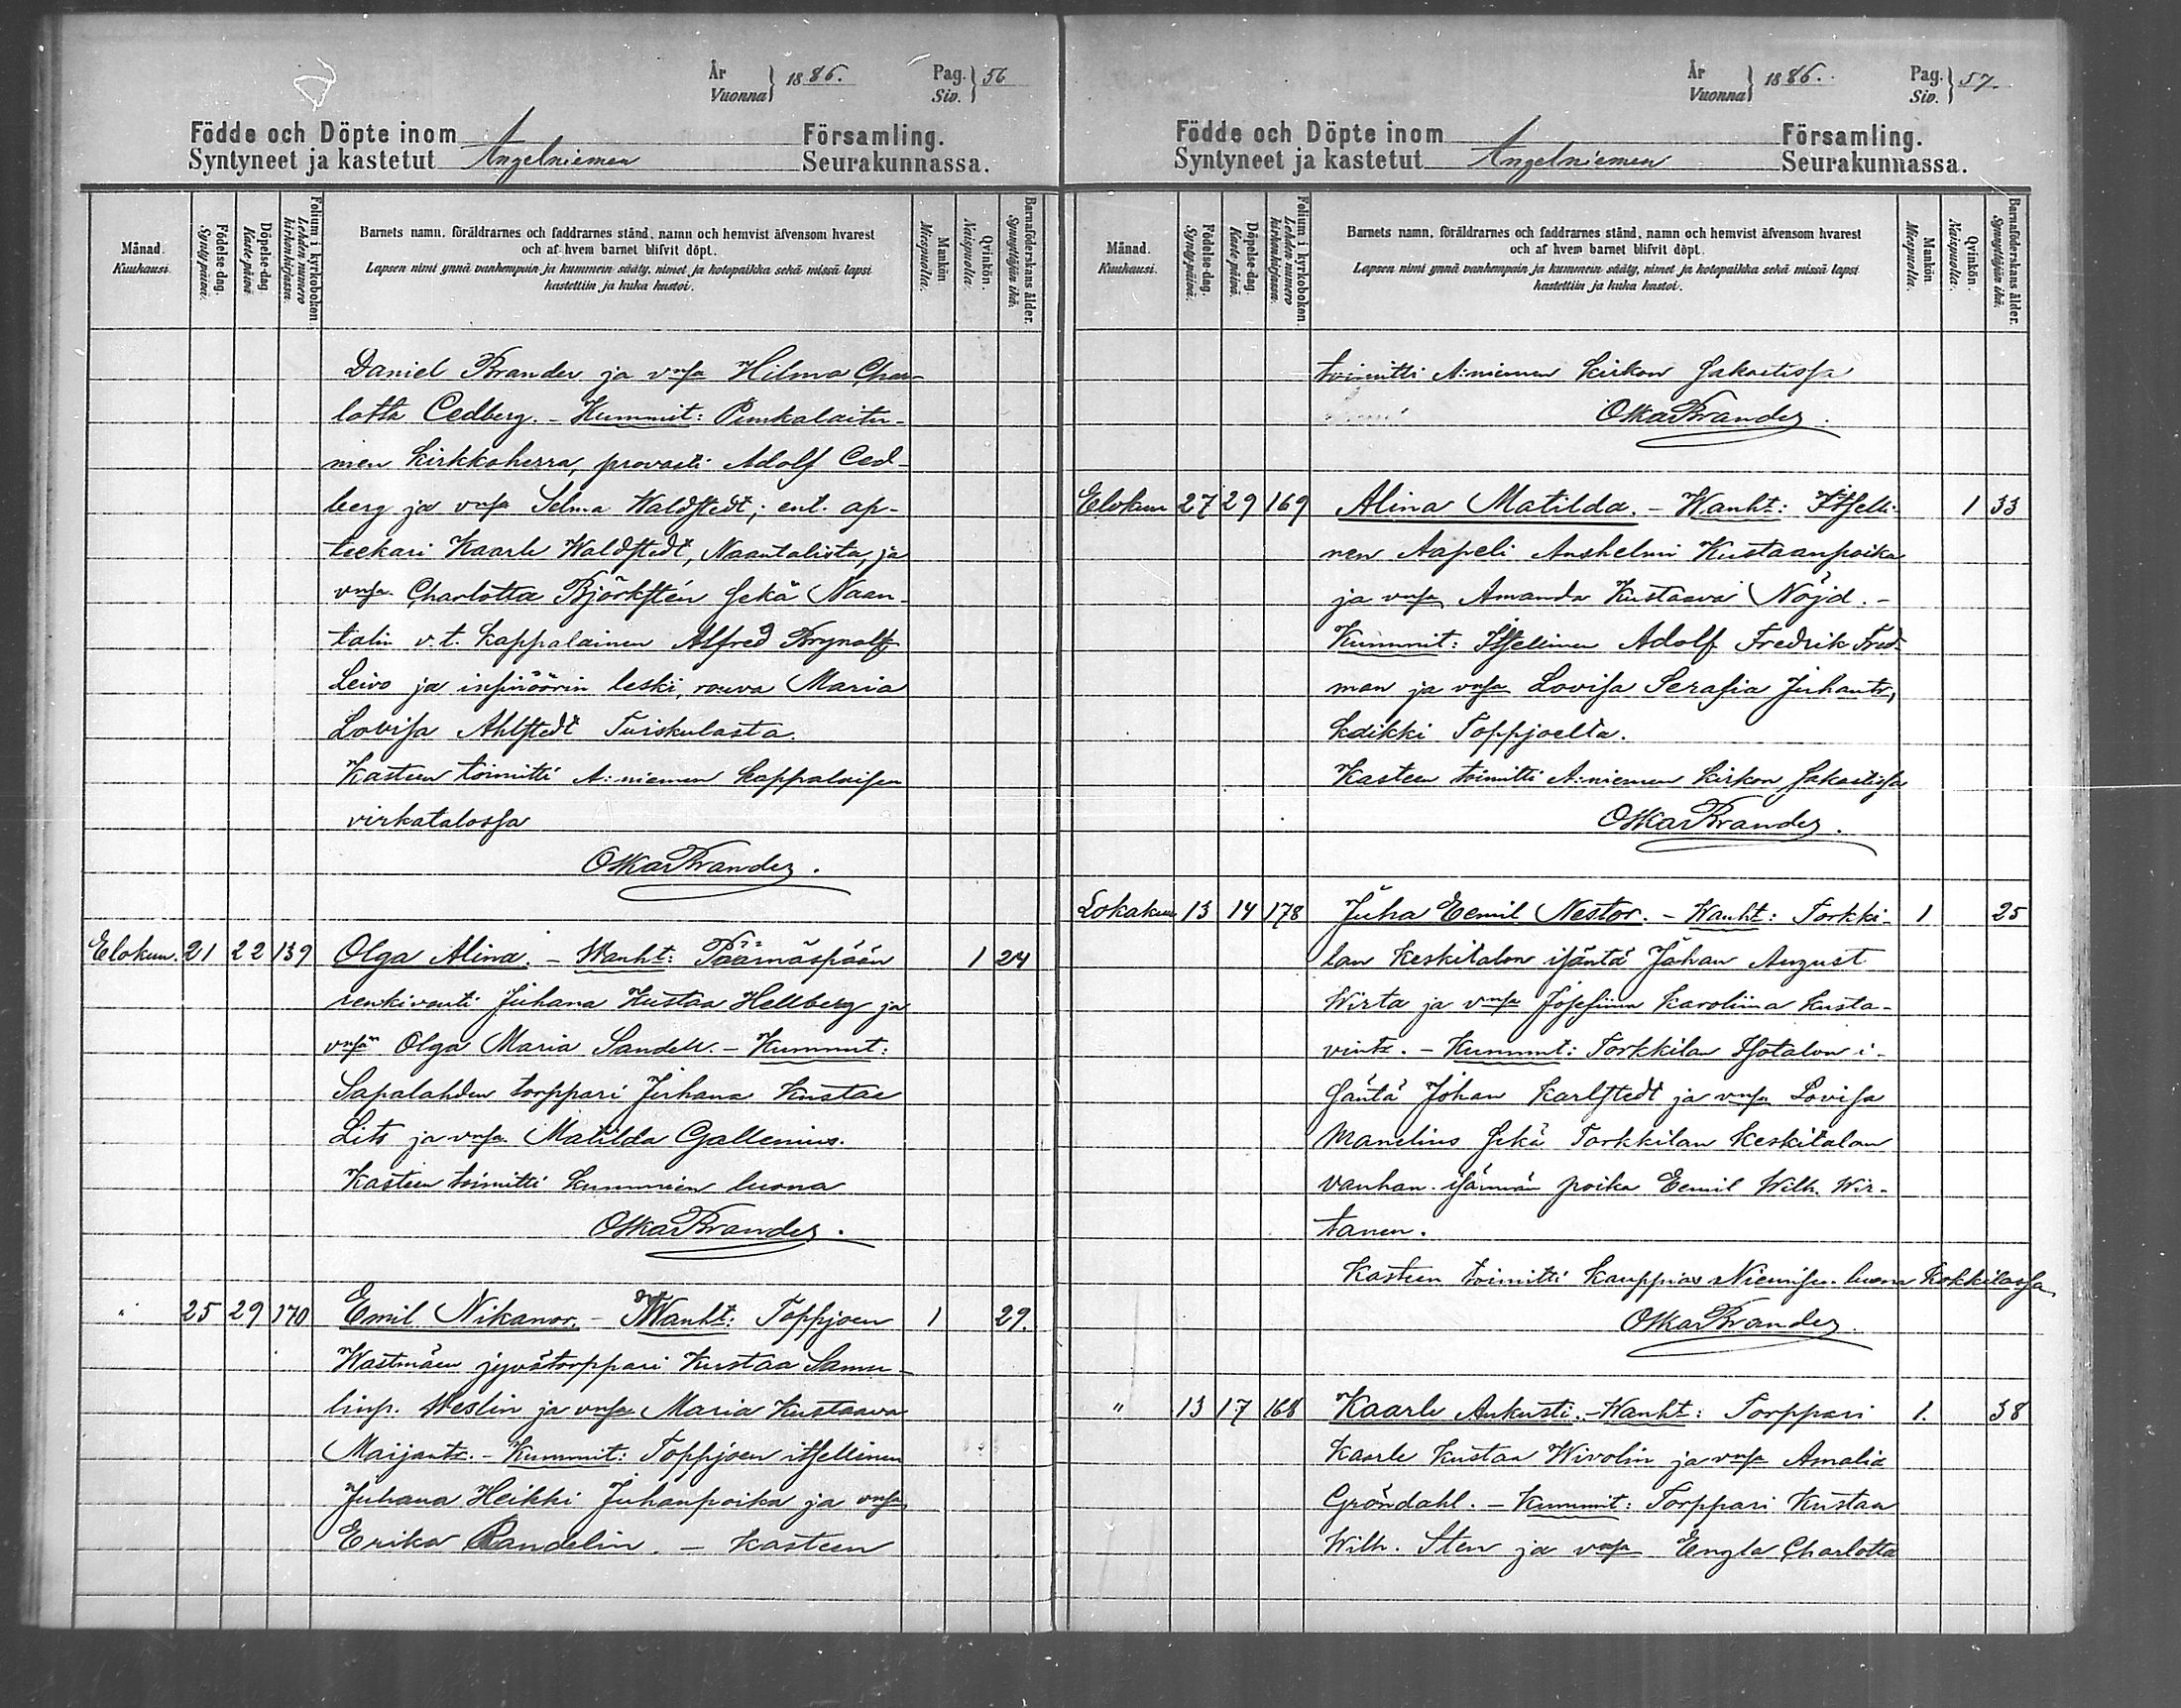 År
Vuonna } 1886.
Pag.
Siv. } 56
Födde och Döpte inom Församling.
Syntyneet ja kastetut Angelniemen Seurakunnassa.
Månad. Kuukausi.
Födelse-dag. Synty päivä.
Döpelse-dag. Kaste-päivä.
Folium i kyrkoboken. Lehden numero kirkonkirjassa.
Barnets namn, föräldrarnes och faddrarnes stånd, namn och hemvist äfvensom hvarest
och af hvem barnet blifvit döpt.
Lapsen nimi ynnä vanhempain ja kummein sääty, nimet ja kotopaikka sekä missä lapsi
kastettiin ja kuka kastoi.
Mankön. Miespuolia.
Qvinkön. Naispuolia.
Barnaföderskans ålder. Synnyttäjän ikä.
Daniel Brander ja vmsa Hilma Char-
lotta Cedberg. - Kummit: Punkalaitu-
men kirkkoherra, provasti Adolf Ced-
berg ja vmsa Selma Waldstedt; ent. ap-
teekari Kaarle Waldstedt, Naantalista, ja
vmsa Charlotta Björkstén sekä Naan-
talin v.t. kappalainen Alfred Brynolf
Leivo ja insinöörin leski, rouva Maria
Lovisa Ahlstedt Tuiskulasta.
Kasteen toimitti A:niemen kappalaisen
virkatalossa
Oskar Brander.
Elokuu. 21 22 139 Olga Alina. - Wanht: Päärnäspään 1 24
renkivouti Juhana Kustaa Hellberg ja
vmsa Olga Maria Sandell. - Kummit:
Sapalahden torppari Juhana Kustaa
Lits ja vmsa Matilda Gallenius.
Kasteen toimitti kummien luona
Oskar Brander.
" 25 29 170 Emil Nikanor. - Wanht: Toppjoen 1 29.
Wastmäen jyvätorppari Kustaa Samu-
linp. Weslin ja vmsa Maria Kustaava
Maijantr. - Kummit: Toppjoen itsellinen
Juhana Heikki Juhanpoika ja vmsa
Erika Randelin. - Kasteen
År
Vuonna } 1886.
Pag.
Siv. } 57.
Födde och Döpte inom Församling.
Syntyneet ja kastetut Angelniemen Seurakunnassa.
Månad. Kuukausi.
Födelse-dag. Synty päivä.
Döpelse-dag. Kaste-päivä.
Folium i kyrkoboken. Lehden numero kirkonkirjassa.
Barnets namn, föräldrarnes och faddrarnes stånd, namn och hemvist äfvensom hvarest
och af hvem barnet blifvit döpt.
Lapsen nimi ynnä vanhempain ja kummein sääty, nimet ja kotopaikka sekä missä lapsi
kastettiin ja kuka kastoi.
Mankön. Miespuolia.
Qvinkön. Naispuolia.
Barnaföderskans ålder. Synnyttäjän ikä.
toimitti A:niemen kirkon sakastissa
Oskar Brander.
Elokuu 27 29 169 Alina Matilda. - Wanht: Itselli- 1 33
nen Aapeli Anshelmi Kustaanpoika
ja vmsa Amanda Kustaava Nöjd. -
Kummit: Itsellinen Adolf Fredrik Fred-
man ja vmsa Lovisa Serafia Juhantr,
kaikki Toppjoelta.
Kasteen toimitti A:niemen kirkon sakastissa
Oskar Brander.
Lokakuu 13 14 178 Juha Eemil Nestor. - Wanht: Torkki- 1 25
lan Keskitalon isäntä Johan August
Wirta ja vmsa Josefiina Karoliina Kusta-
vintr. - Kummit: Torkkilan Isotalon i-
säntä Johan Karlstedt ja vmsa Lovisa
Manelius sekä Torkkilan Keskitalon
vanhan isännän poika Eemil Wilh. Wir-
tanen.
Kasteen toimitti kauppias Niemisen luona Kokkilassa
Oskar Brander.
" 13 17 168 Kaarle Aukusti. - Wanht: Torppari 1. 38
Kaarle Kustaa Wivolin ja vmsa Amalia
Gröndahl. - Kummit: Torppari Kustaa
Wilh. Sten ja vmsa Engla Charlotta